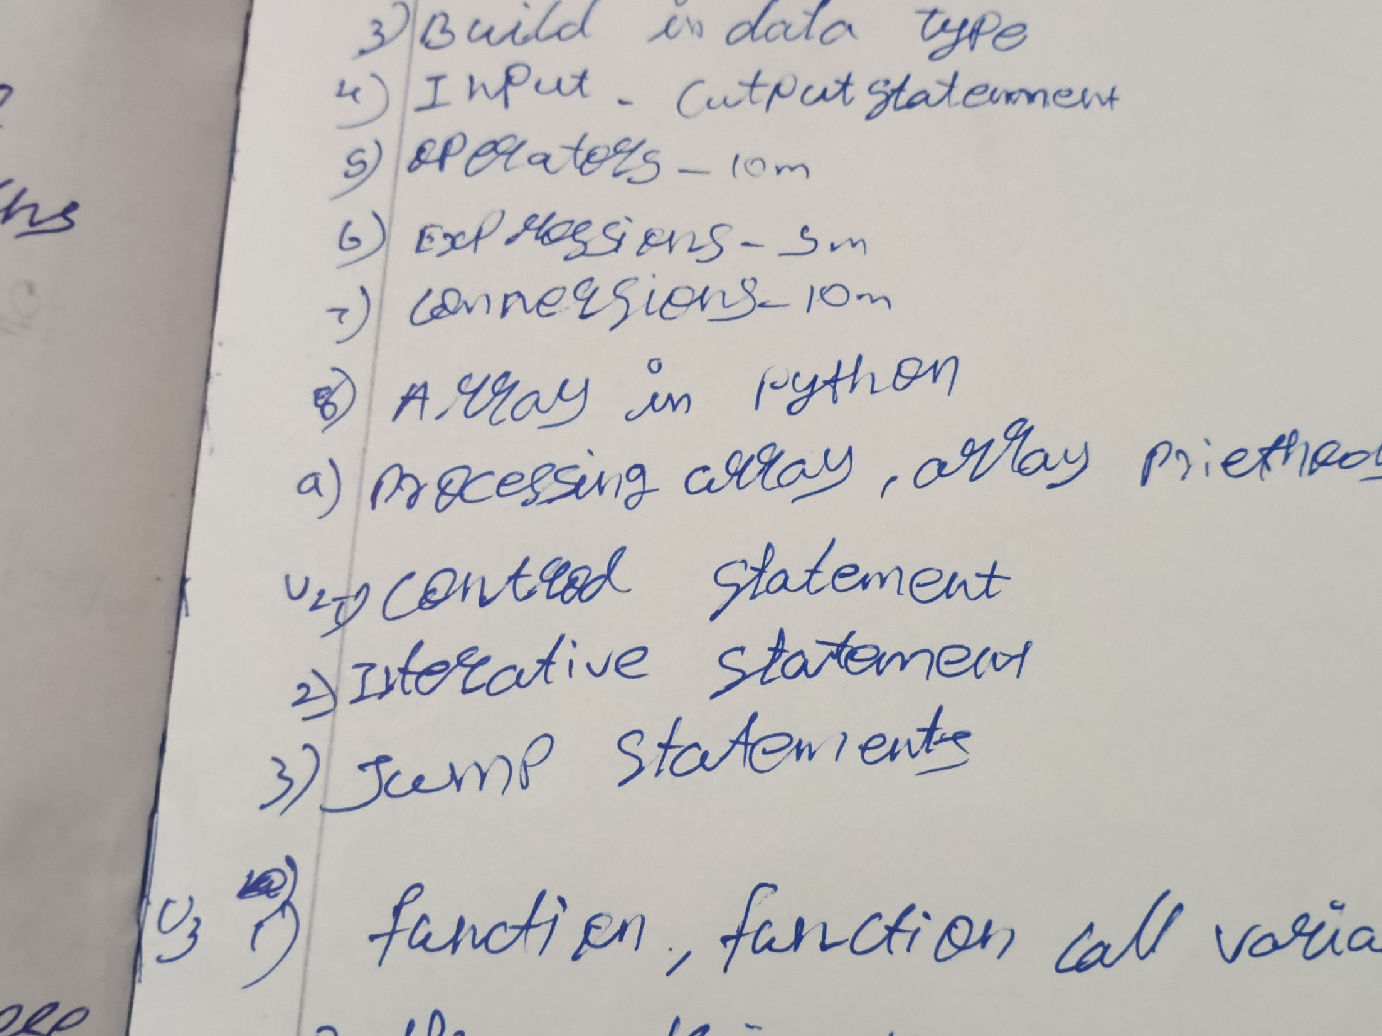 3) Build in data type
4) Input - Output statement
5) Operators - 10m
6) Expressions - 5m
7) Connersions - 10m
8) Array in python
a) Processing array, array
U2 1) Control statement
2) Iterative statement
3) Jump statements
U3 1) function, function call varia